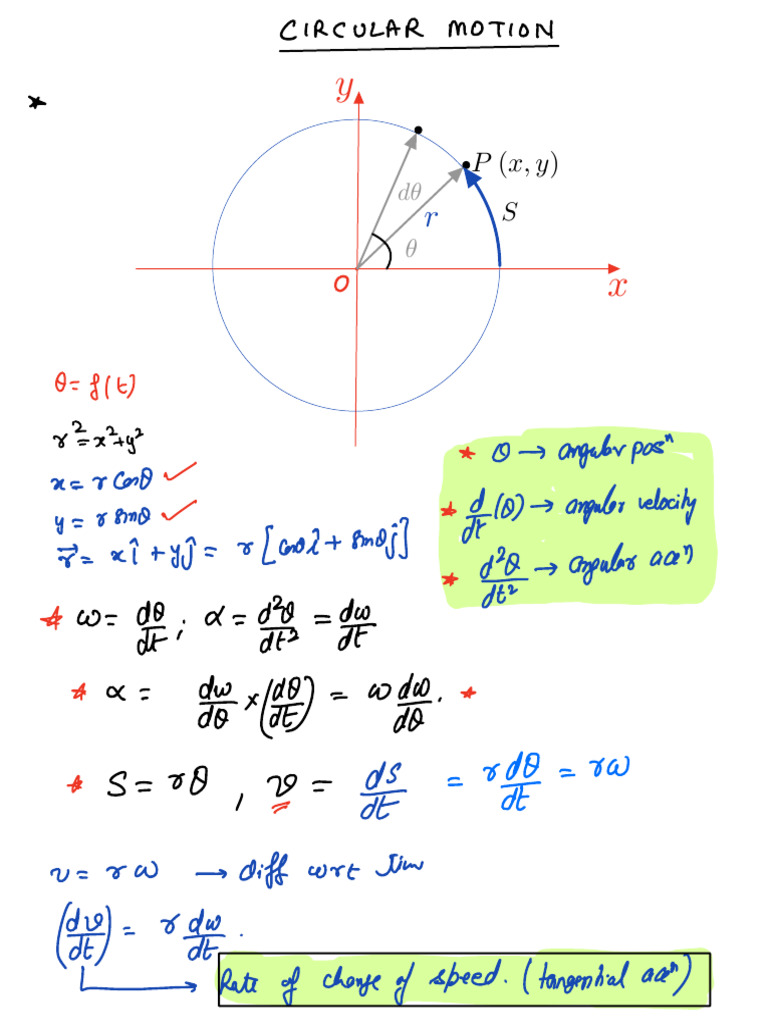 CIRCULAR MOTION
*
y
P (x, y)
dθ
r
S
θ
O
x
θ = f(t)
r² = x² + y²
x = r Cosθ ✓
y = r sinθ ✓
r⃗ = xî + yĵ = r [cosθ î + sinθ ĵ]
* θ → angular posⁿ
* d/dt (θ) → angular velocity
* d²θ/dt² → angular accⁿ
* ω = dθ/dt ; α = d²θ/dt² = dω/dt
* α = dω/dθ × (dθ/dt) = ω dω/dθ . *
* S = rθ , v = ds/dt = r dθ/dt = rω
v = rω → diff wrt time
(dv/dt) = r dω/dt .
Rate of change of speed. (tangential accⁿ)